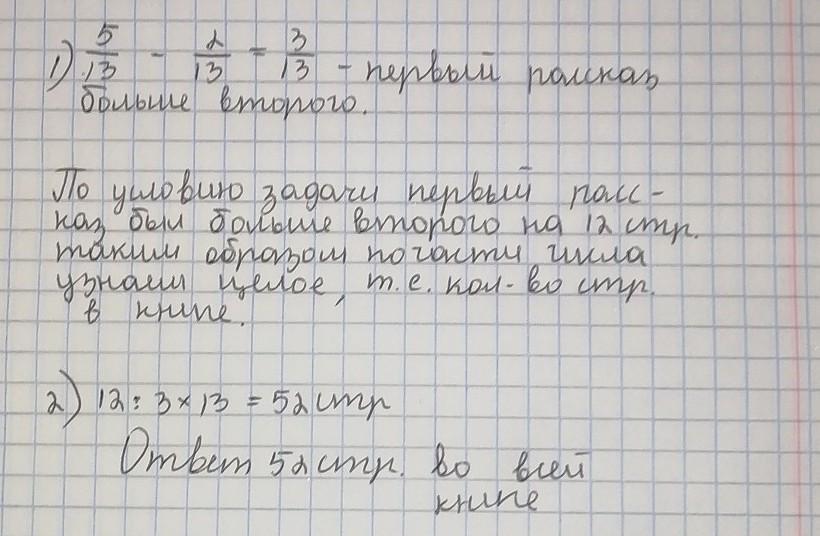 1) 5/13 - 2/13 = 3/13 - первый рассказ
больше второго.
По условию задачи первый расс-
каз был больше второго на 12 стр.
таким образом по части числа
узнаем целое, т.е. кол-во стр.
в книге.
2) 12 : 3 × 13 = 52 стр
Ответ 52 стр. во всей
книге